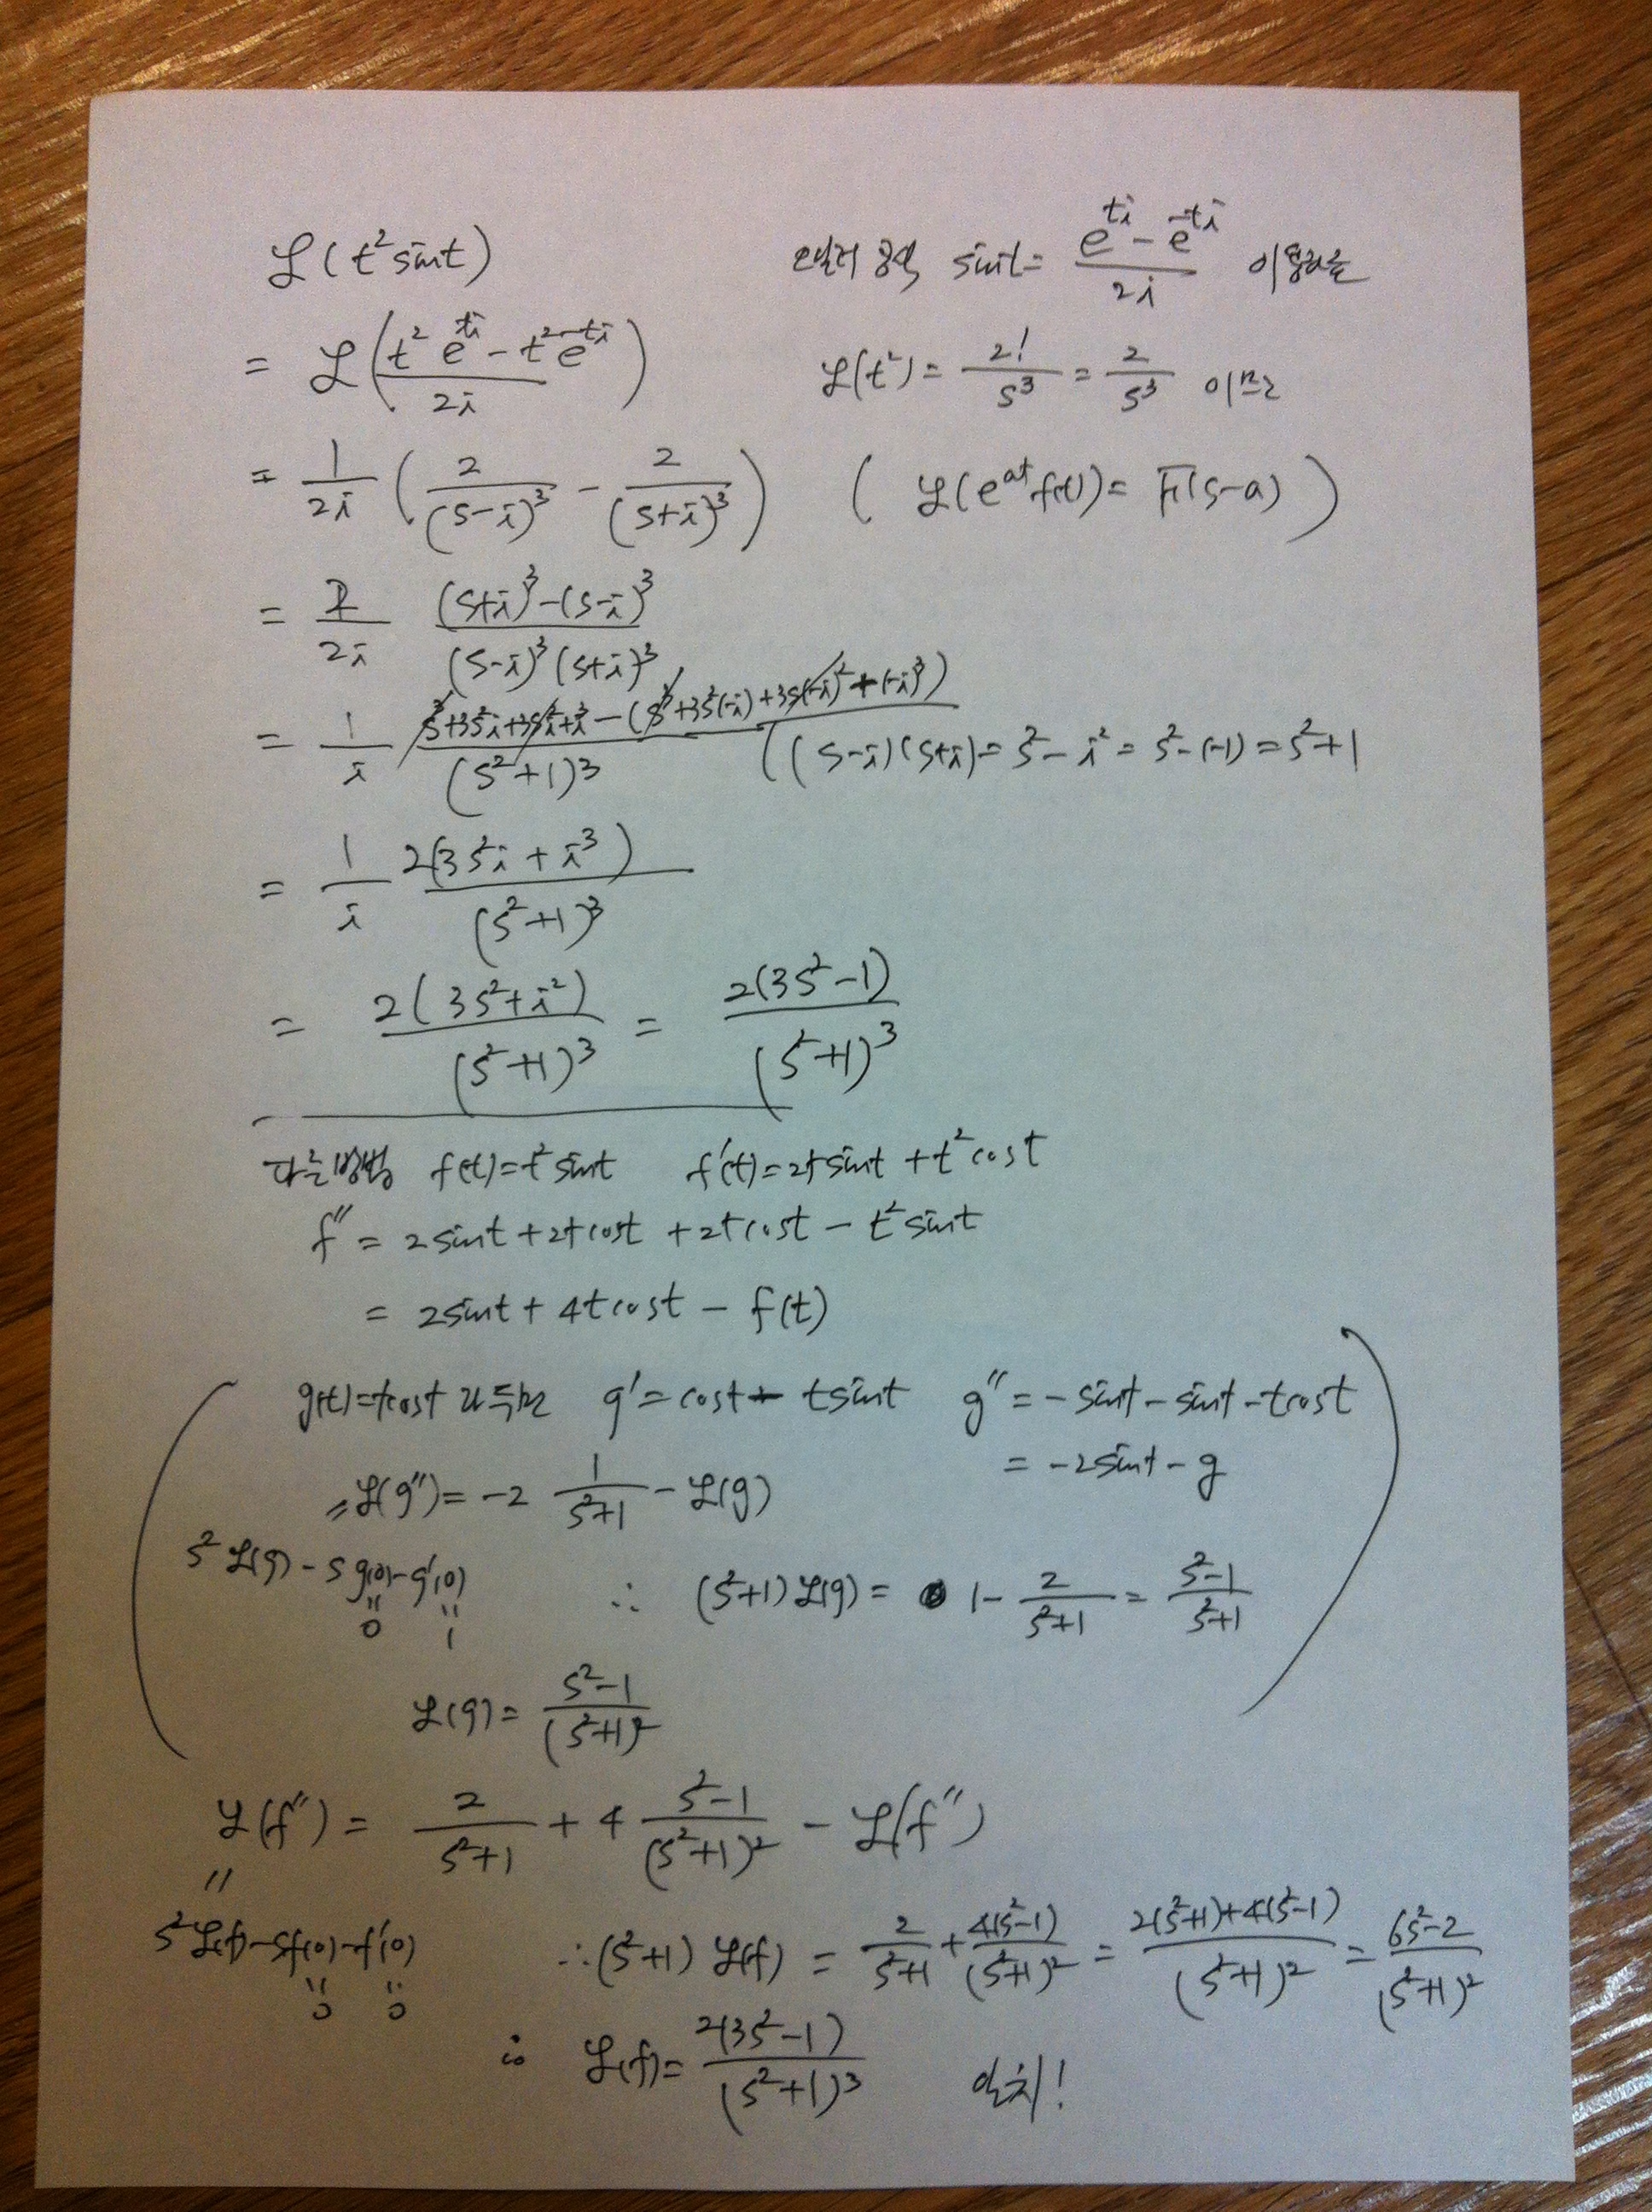 ℒ(t²sint) 오일러 공식 sint = (e^{ti} - e^{-ti})/2i 이용하면
= ℒ((t²e^{ti} - t²e^{-ti})/2i) ℒ(t²) = 2!/s³ = 2/s³ 이므로
= 1/2i (2/(s-i)³ - 2/(s+i)³) (ℒ(e^{at}f(t)) = F(s-a))
= 2/2i ((s+i)³-(s-i)³)/((s-i)³(s+i)³)
= 1/i (s³+3s²i+3si²+i³-(s³+3s²(-i)+3s(-i)²+(-i)³))/(s²+1)³ ((s-i)(s+i) = s²-i² = s²-(-1) = s²+1
= 1/i 2(3s²i+i³)/(s²+1)³
= 2(3s²+i²)/(s²+1)³ = 2(3s²-1)/(s²+1)³
다른방법 f(t)=t²sint f'(t)=2tsint+t²cost
f'' = 2sint+2tcost+2tcost-t²sint
= 2sint+4tcost-f(t)
g(t)=tcost 라 두면 g'=cost-tsint g''=-sint-sint-tcost
= -2sint-g
=ℒ(g'')=-2 1/(s²+1) - ℒ(g)
s²ℒ(g)-sg(0)-g'(0) ∴ (s²+1)ℒ(g) = 1 - 2/(s²+1) = (s²-1)/(s²+1)
" "
0 1
ℒ(g) = (s²-1)/(s²+1)²
ℒ(f'') = 2/(s²+1) + 4 (s²-1)/(s²+1)² - ℒ(f'')
"
s²ℒ(f)-sf(0)-f'(0) ∴(s²+1)ℒ(f) = 2/(s²+1) + 4(s²-1)/(s²+1)² = (2(s²+1)+4(s²-1))/(s²+1)² = (6s²-2)/(s²+1)²
" "
0 0
∴ ℒ(f) = 2(3s²-1)/(s²+1)³ 일치!